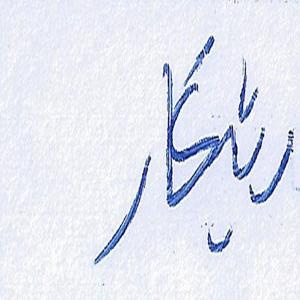 ریکار